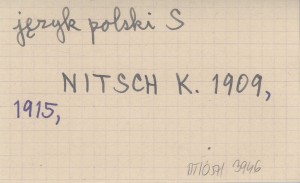 język polski S
NITSCH K. 1909,
1915,
3946